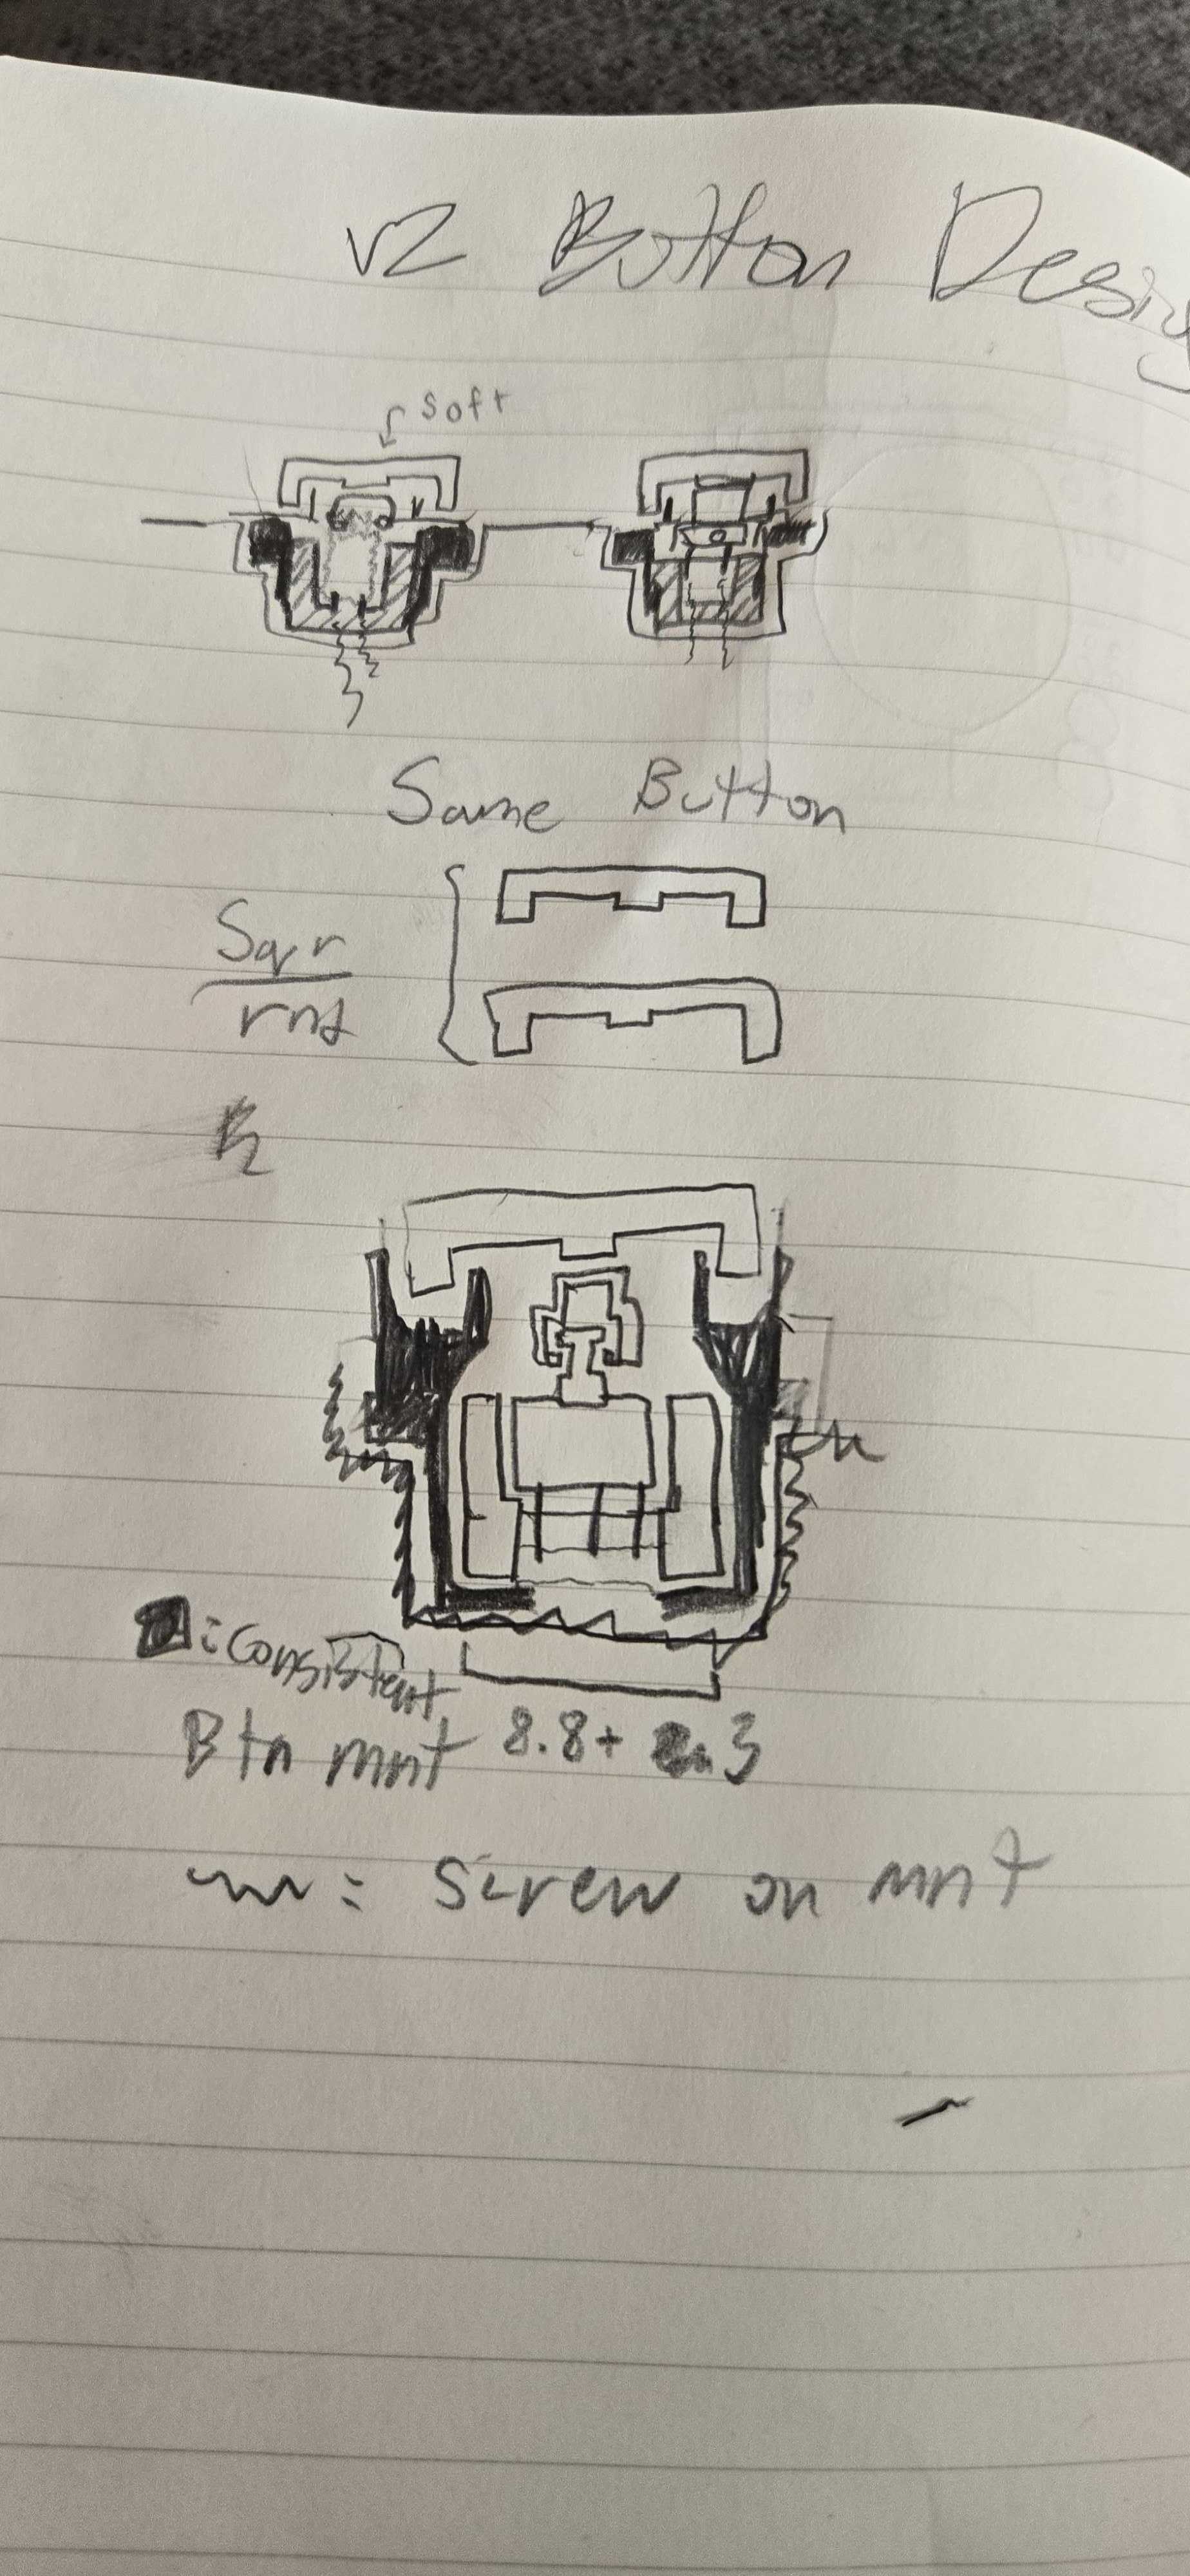 v2 Button Desig
soft
Same Button
Sqr
rnd
: Consistent
Btn mnt 8.8+ .3
: Screw on mnt